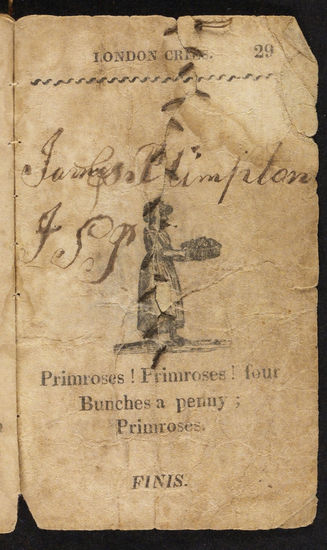 LONDON CRIES. 29
James Plimpton
J S P
Primroses ! Primroses ! four
Bunches a penny ;
Primroses.
FINIS.